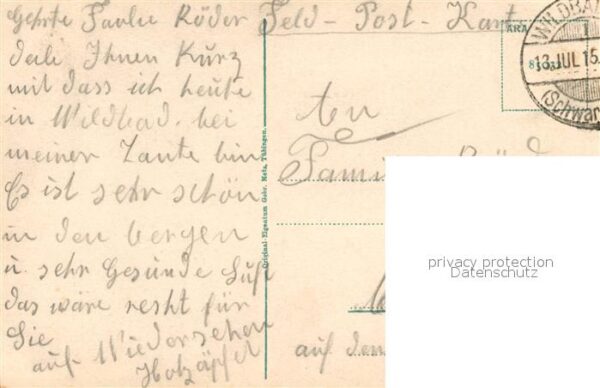 Gehrte Familie Röder
deile Ihnen Kurz
mit dass ich heute
in Wildbad bei
meiner Tante bin
Es ist sehr schön
in den bergen
u. sehr Gesunde Luft
das wäre resht für
Sie
auf Wiedersehen
Holzäpfel
Feld-Post-Kart
WILDBA
13.JUL.15.
(Schwar
Original-Eigentum Gebr. Metz, Tübingen.
An
Familie
auf dem
privacy protection
Datenschutz